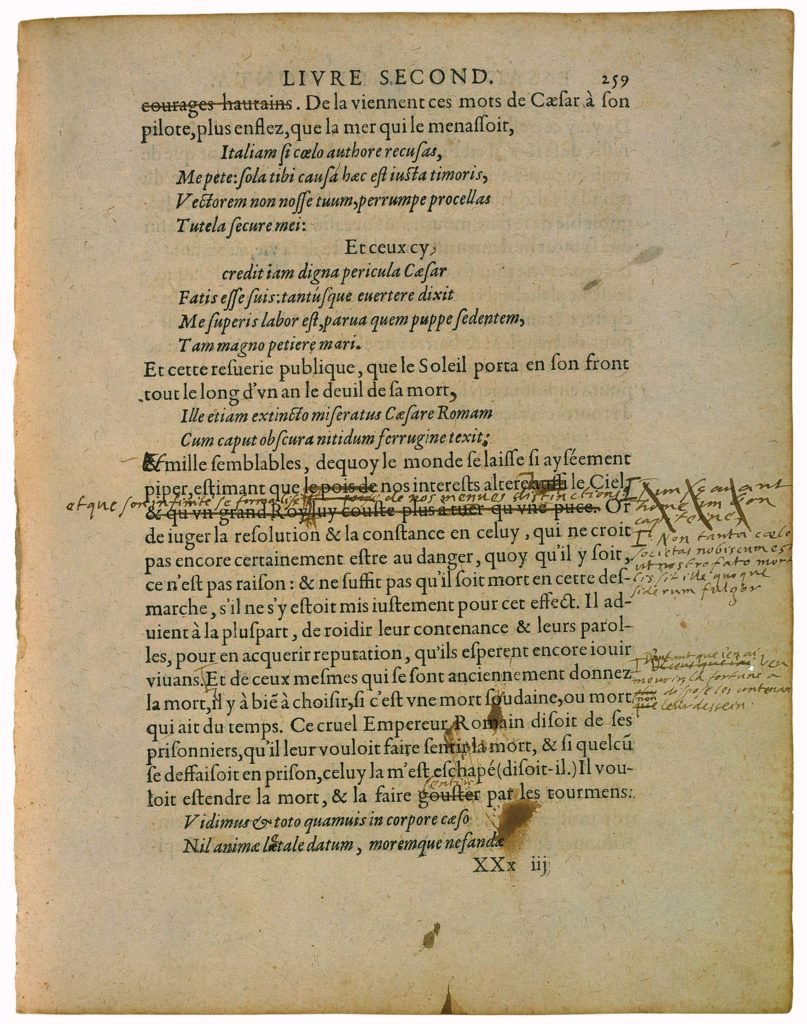 LIVRE SECOND. 259
courages hautains. De la viennent ces mots de Cæſar à ſon
pilote, plus enflez, que la mer qui le menaſſoit,
Italiam ſi cœlo authore recuſas,
Me pete: ſola tibi cauſa hæc eſt iuſta timoris,
Vectorem non noſſe tuum, perrumpe procellas
Tutela ſecure mei:
Et ceux cy,
credit iam digna pericula Cæſar
Fatis eſſe ſuis: tantúſque euertere dixit
Me ſuperis labor eſt, parua quem puppe ſedentem,
Tam magno petiere mari.
Et cette reſuerie publique, que le Soleil porta en ſon front
tout le long d'vn an le deuil de ſa mort,
Ille etiam extincto miſeratus Cæſare Romam
Cum caput obſcura nitidum ferrugine texit:
Et mille ſemblables, dequoy le monde ſe laiſſe ſi ayſéement
piper, eſtimant que le pois de nos intereſts altere auſſi le Ciel,
et que son infinité se formalise de nos menues distinctions
& qu'vn grand Roy luy couſte plus a tuer qu'vne puce. Or
Non tanta cælo
societas nobiscum est
ut nostro fato mortalis
sit ille quoque
siderum fulgor
de iuger la reſolution & la conſtance en celuy, qui ne croit
pas encore certainement eſtre au danger, quoy qu'il y ſoit,
ce n'eſt pas raiſon: & ne ſuffit pas qu'il ſoit mort en cette deſ-
marche, s'il ne s'y eſtoit mis iuſtement pour cet effect. Il ad-
uient à la pluſpart, de roidir leur contenance & leurs parol-
les, pour en acquerir reputation, qu'ils eſperent encore iouir
viuans. Et de ceux meſmes qui ſe ſont anciennement donnez
D'autant que i'en ai veu
mourir, la fortune a
dispose les contenances
non leur dessein
la mort, il y à biẽ à choiſir, ſi c'eſt vne mort ſoudaine, ou mort
qui ait du temps. Ce cruel Empereur Romain diſoit de ſes
priſonniers, qu'il leur vouloit faire ſentir la mort, & ſi quelcũ
ſe deffaiſoit en priſon, celuy la m'eſt eſchapé (diſoit-il.) Il vou-
sentir
loit eſtendre la mort, & la faire gouſter par les tourmens:
Vidimus & toto quamuis in corpore cæſo
Nil animæ letale datum, moremque nefandæ
XXx iij